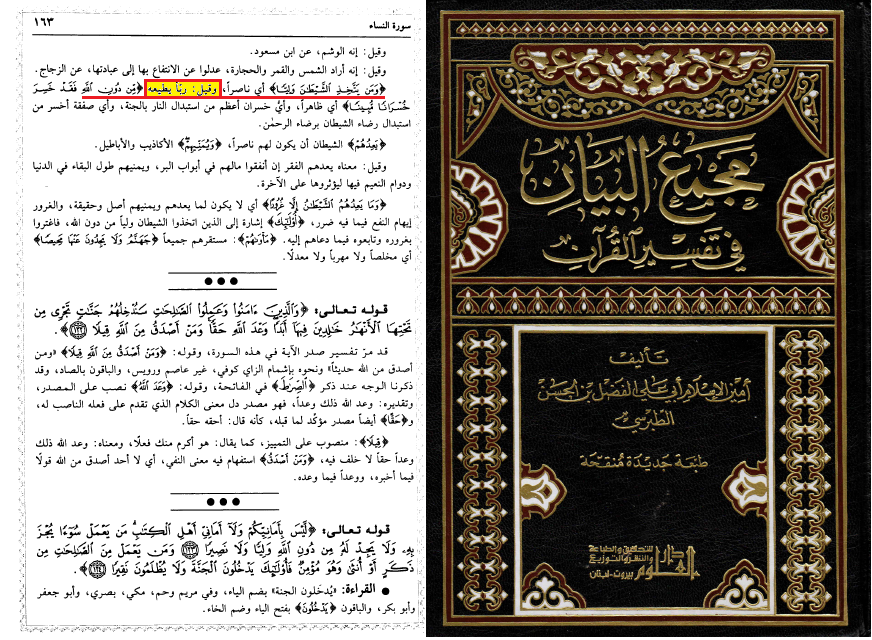 سورة النساء ١٦٣
وقيل: إنه الوشم، عن ابن مسعود.
وقيل: إنه أراد الشمس والقمر والحجارة، عدلوا عن الانتفاع بها إلى عبادتها، عن الزجاج.
﴿وَمَن يَتَّخِذِ الشَّيْطَٰنَ وَلِيًّا﴾ أي ناصراً، وقيل: ربّاً يطيعه ﴿مِّن دُونِ اللَّهِ فَقَدْ خَسِرَ
خُسْرَانًا مُّبِينًا﴾ أي ظاهراً، وأيُّ خسران أعظم من استبدال النار بالجنة، وأي صفقة أخسر من
استبدال رضاء الشيطان برضاء الرحمٰن.
﴿يَعِدُهُمْ﴾ الشيطان أن يكون لهم ناصراً، ﴿وَيُمَنِّيهِمْ﴾ الأكاذيب والأباطيل.
وقيل: معناه يعدهم الفقر إن أنفقوا مالهم في أبواب البر، ويمنيهم طول البقاء في الدنيا
ودوام النعيم فيها ليؤثروها على الآخرة.
﴿وَمَا يَعِدُهُمُ الشَّيْطَٰنُ إِلَّا غُرُورًا﴾ أي لا يكون لما يعدهم ويمنيهم أصل وحقيقة، والغرور
إيهام النفع فيما فيه ضرر، ﴿أُوْلَٰٓئِكَ﴾ إشارة إلى الذين اتخذوا الشيطان ولياً من دون الله، فاغتروا
بغروره وتابعوه فيما دعاهم إليه. ﴿مَأْوَىٰهُمْ﴾: مستقرهم جميعاً ﴿جَهَنَّمُ وَلَا يَجِدُونَ عَنْهَا مَحِيصًا﴾
أي مخلصاً ولا مهرباً ولا معدلًا.
قوله تعالى: ﴿وَالَّذِينَ ءَامَنُوا وَعَمِلُوا الصَّٰلِحَٰتِ سَنُدْخِلُهُمْ جَنَّٰتٍ تَجْرِى مِن
تَحْتِهَا الْأَنْهَٰرُ خَٰلِدِينَ فِيهَآ أَبَدًا وَعْدَ اللَّهِ حَقًّا وَمَنْ أَصْدَقُ مِنَ اللَّهِ قِيلًا ١٢٢﴾.
قد مرّ تفسير صدر الآية في هذه السورة، وقوله: ﴿وَمَنْ أَصْدَقُ مِنَ اللَّهِ قِيلًا﴾ «ومن
أصدق من الله حديثاً» ونحوه بإشمام الزاي كوفي، غير عاصم ورويس، والباقون بالصاد، وقد
ذكرنا الوجه عند ذكر ﴿الصِّرَٰطَ﴾ في الفاتحة، وقوله: ﴿وَعْدَ اللَّهِ﴾ نصب على المصدر،
وتقديره: وعد الله ذلك وعداً، فهو مصدر دل معنى الكلام الذي تقدم على فعله الناصب له،
و﴿حَقًّا﴾ أيضاً مصدر مؤكّد لما قبله، كأنه قال: أحقه حقاً.
﴿قِيلًا﴾: منصوب على التمييز، كما يقال: هو أكرم منك فعلًا، ومعناه: وعد الله ذلك
وعداً حقاً لا خلف فيه، ﴿وَمَنْ أَصْدَقُ﴾ استفهام فيه معنى النفي، أي لا أحد أصدق من الله قولًا
فيما أخبره، ووعداً فيما وعده.
قوله تعالى: ﴿لَّيْسَ بِأَمَانِيِّكُمْ وَلَآ أَمَانِىِّ أَهْلِ الْكِتَٰبِ مَن يَعْمَلْ سُوٓءًا يُجْزَ
بِهِۦ وَلَا يَجِدْ لَهُۥ مِن دُونِ اللَّهِ وَلِيًّا وَلَا نَصِيرًا ١٢٣ وَمَن يَعْمَلْ مِنَ الصَّٰلِحَٰتِ مِن
ذَكَرٍ أَوْ أُنثَىٰ وَهُوَ مُؤْمِنٌ فَأُوْلَٰٓئِكَ يَدْخُلُونَ الْجَنَّةَ وَلَا يُظْلَمُونَ نَقِيرًا ١٢٤﴾.
● القراءة: «يُدخَلون الجنة» بضم الياء، وفي مريم وحم، مكي، بصري، وأبو جعفر
وأبو بكر، والباقون ﴿يَدْخُلُونَ﴾ بفتح الياء وضم الخاء.
مجمع البيان
في تفسير القرآن
تأليف
أمين الإسلام أبي علي الفضل بن الحسن
الطبرسي
طبعة جديدة منقحة
دار العلوم
للتحقيق والطباعة
والنشر والتوزيع
بيروت - لبنان